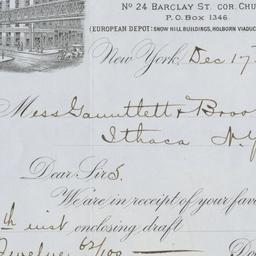 No 24 BARCLAY ST. COR. CHU
P.O. BOX 1346.
(EUROPEAN DEPOT: SNOW HILL BUILDINGS, HOLBORN VIADUC
New York, Dec 17
Mess Gauntlett & Broo
Ithaca N.Y
Dear Sirs.
We are in receipt of your favo
th inst enclosing draft
Twelve 62/100 Do